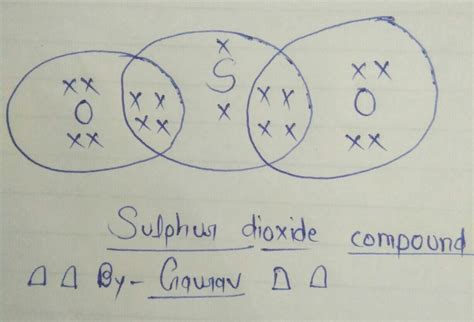 x
xx S xx
O xx xx O
xx xx x xx xx
Sulphur dioxide compound
By- Gaurav